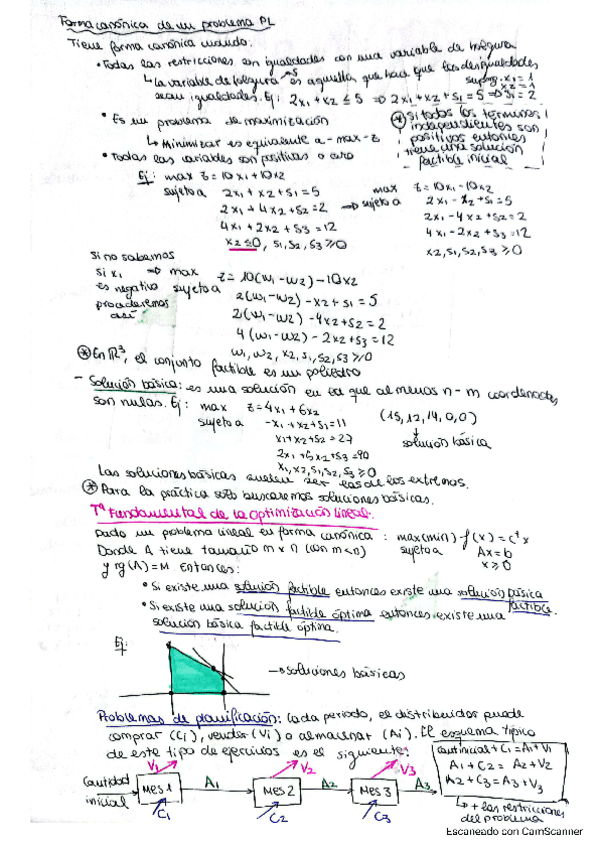 Forma canónica de un problema PL
Tiene forma canónica cuando:
• Todas las restricciones son igualdades con una variable de holgura
↳ La variable de holgura es aquella que hace que las desigualdades
sean igualdades. Ej: 2x1 + x2 ≤ 5 ⇒ 2x1 + x2 + s1 = 5 ⇒ s1 = 2
supong. x1 = 1
x2 = 1
• Es un problema de maximización
↳ Minimizar es equivalente a - max - z
• Todas las variables son positivas o cero
* Si todos los términos
independientes son
positivos entonces
tiene una solución
factible inicial
Ej: max z = 10x1 + 10x2
sujeto a 2x1 + x2 + s1 = 5
2x1 + 4x2 + s2 = 2
4x1 + 2x2 + s3 = 12
x2 ≤ 0, s1, s2, s3 ≥ 0
⇒ max z = 10x1 - 10x2
sujeto a 2x1 - x2 + s1 = 5
2x1 - 4x2 + s2 = 2
4x1 - 2x2 + s3 = 12
x2, s1, s2, s3 ≥ 0
Si no sabemos
si x1
es negativo
procederemos
así
⇒ max z = 10(w1 - w2) - 10x2
sujeto a 2(w1 - w2) - x2 + s1 = 5
2(w1 - w2) - 4x2 + s2 = 2
4(w1 - w2) - 2x2 + s3 = 12
w1, w2, x2, s1, s2, s3 ≥ 0
* En R³, el conjunto factible es un poliedro
- Solución básica: es una solución en la que al menos n - m coordenadas
son nulas. Ej: max z = 4x1 + 6x2
sujeto a -x1 + x2 + s1 = 11
x1 + x2 + s2 = 27
2x1 + 5x2 + s3 = 90
x1, x2, s1, s2, s3 ≥ 0
(15, 12, 14, 0, 0)
solución básica
Las soluciones básicas suelen ser las de los extremos.
* Para la práctica solo buscaremos soluciones básicas.
Tª Fundamental de la Optimización lineal.
Dado un problema lineal en forma canónica: max(min) f(x) = cᵗx
Donde A tiene tamaño m x n (con m < n) sujeto a Ax = b
y rg(A) = M entonces: x ≥ 0
• Si existe una solución factible entonces existe una solución básica factible.
• Si existe una solución factible óptima entonces existe una
solución básica factible óptima.
Ej:
→ soluciones básicas
Problemas de planificación: Cada periodo, el distribuidor puede
comprar (Ci), vender (Vi) o almacenar (Ai). El esquema típico
de este tipo de ejercicios es el siguiente:
V1 V2 V3
Cantidad inicial Mes 1 A1 Mes 2 A2 Mes 3 A3
C1 C2 C3
cant inicial + C1 = A1 + V1
A1 + C2 = A2 + V2
A2 + C3 = A3 + V3
↳ + las restricciones
del problema
Escaneado con CamScanner